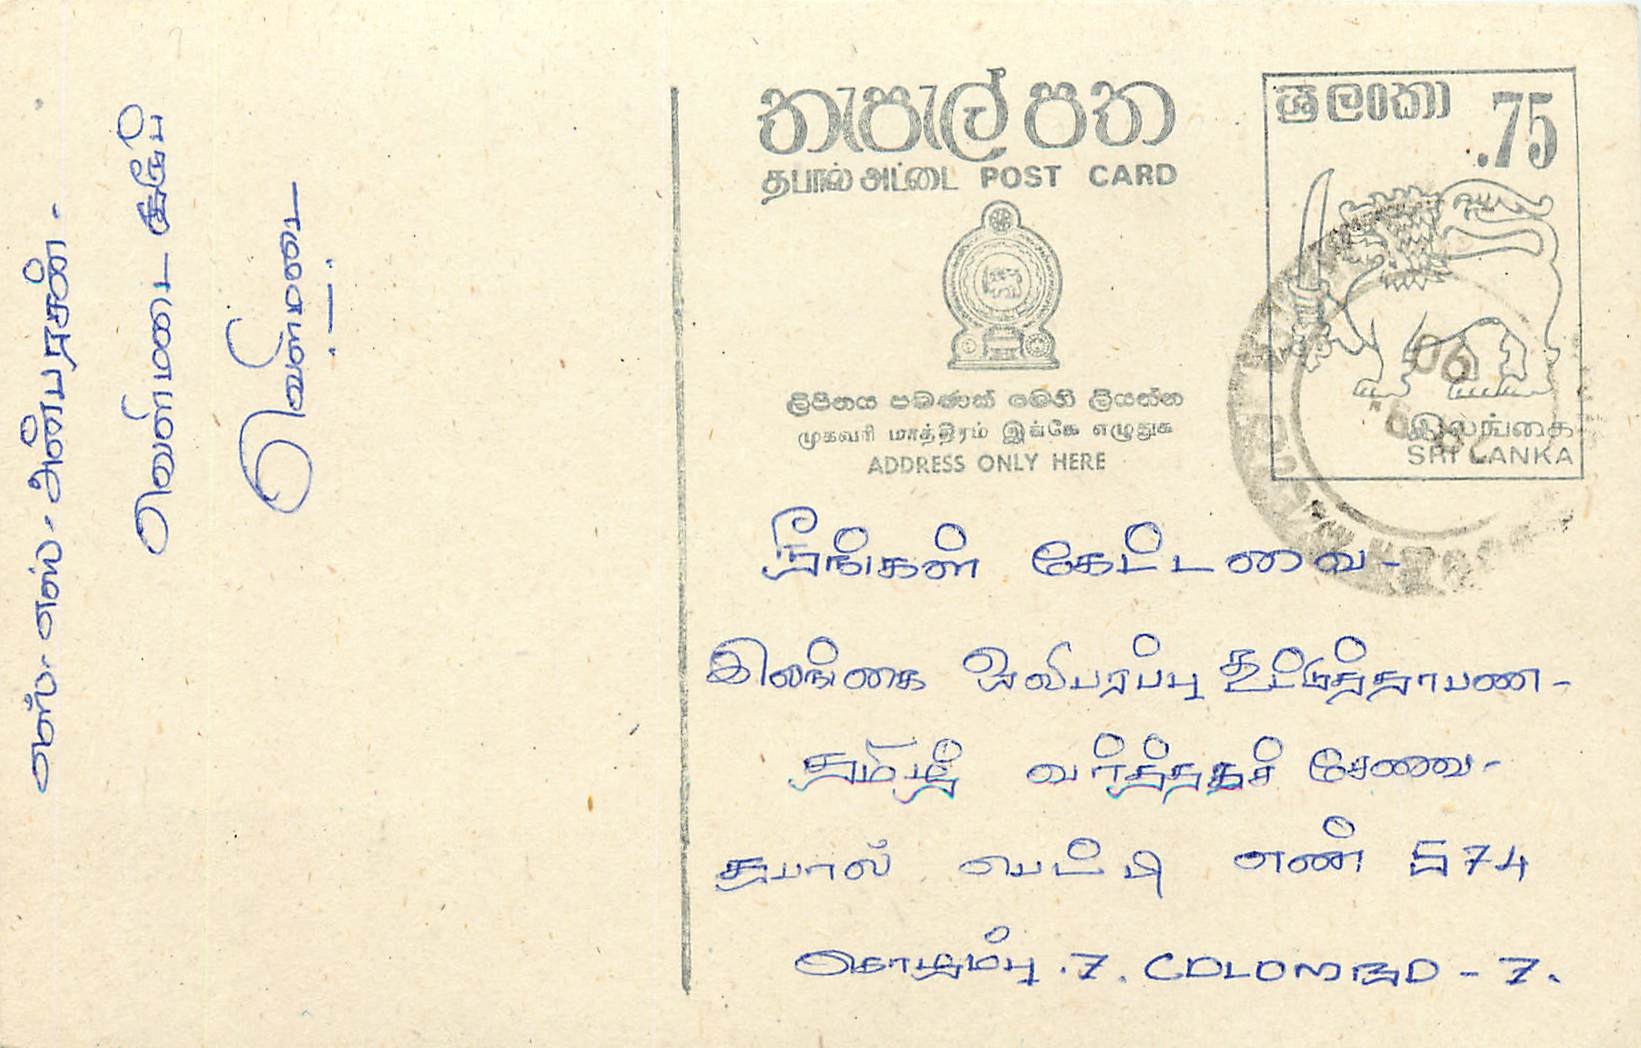 තැපැල් පත
தபால் அட்டை POST CARD
ශ්‍රී ලංකා .75
இலங்கை
SRI LANKA
ලිපිනය පමණක් මෙහි ලියන්න
முகவரி மாத்திரம் இங்கே எழுதுக
ADDRESS ONLY HERE
நீங்கள் கேட்டவை-
இலங்கை ஒலிபரப்பு கூட்டுத்தாபன-
தமிழ் வர்த்தகச் சேவை-
தபால் பெட்டி எண் 574
கொழும்பு .7. COLOMBO - 7.
எஸ். எஸ். அன்பரசன்.